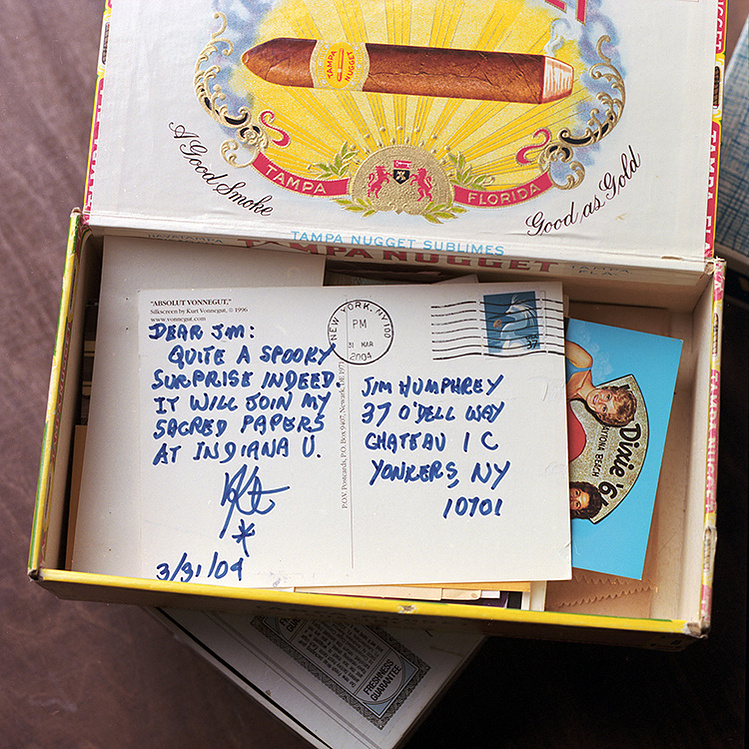 TAMPA
NUGGET
A Good Smoke
TAMPA
FLORIDA
Good as Gold
TAMPA NUGGET SUBLIMES
TAMPA NUGGET
"ABSOLUT VONNEGUT,"
Silkscreen by Kurt Vonnegut, © 1996
www.vonnegut.com
DEAR JIM:
QUITE A SPOOKY
SURPRISE INDEED.
IT WILL JOIN MY
SACRED PAPERS
AT INDIANA U.
3/31/04
P.O.V. Postcards, P.O. Box 9407, Newark, DE 1971
NEW YORK, NY 100
PM
31 MAR
2004
37
JIM HUMPHREY
37 O'DELL WAY
CHATEAU 1 C
YONKERS, NY
10701
Dixie '6
TONA BEACH
FRESHNESS
GUARANTEE